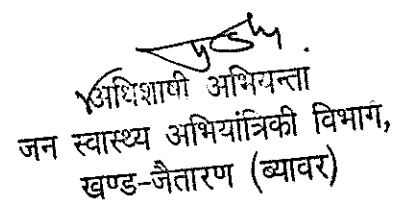 अधिशाषी अभियन्ता
जन स्वास्थ्य अभियांत्रिकी विभाग,
खण्ड-जैतारण (ब्यावर)